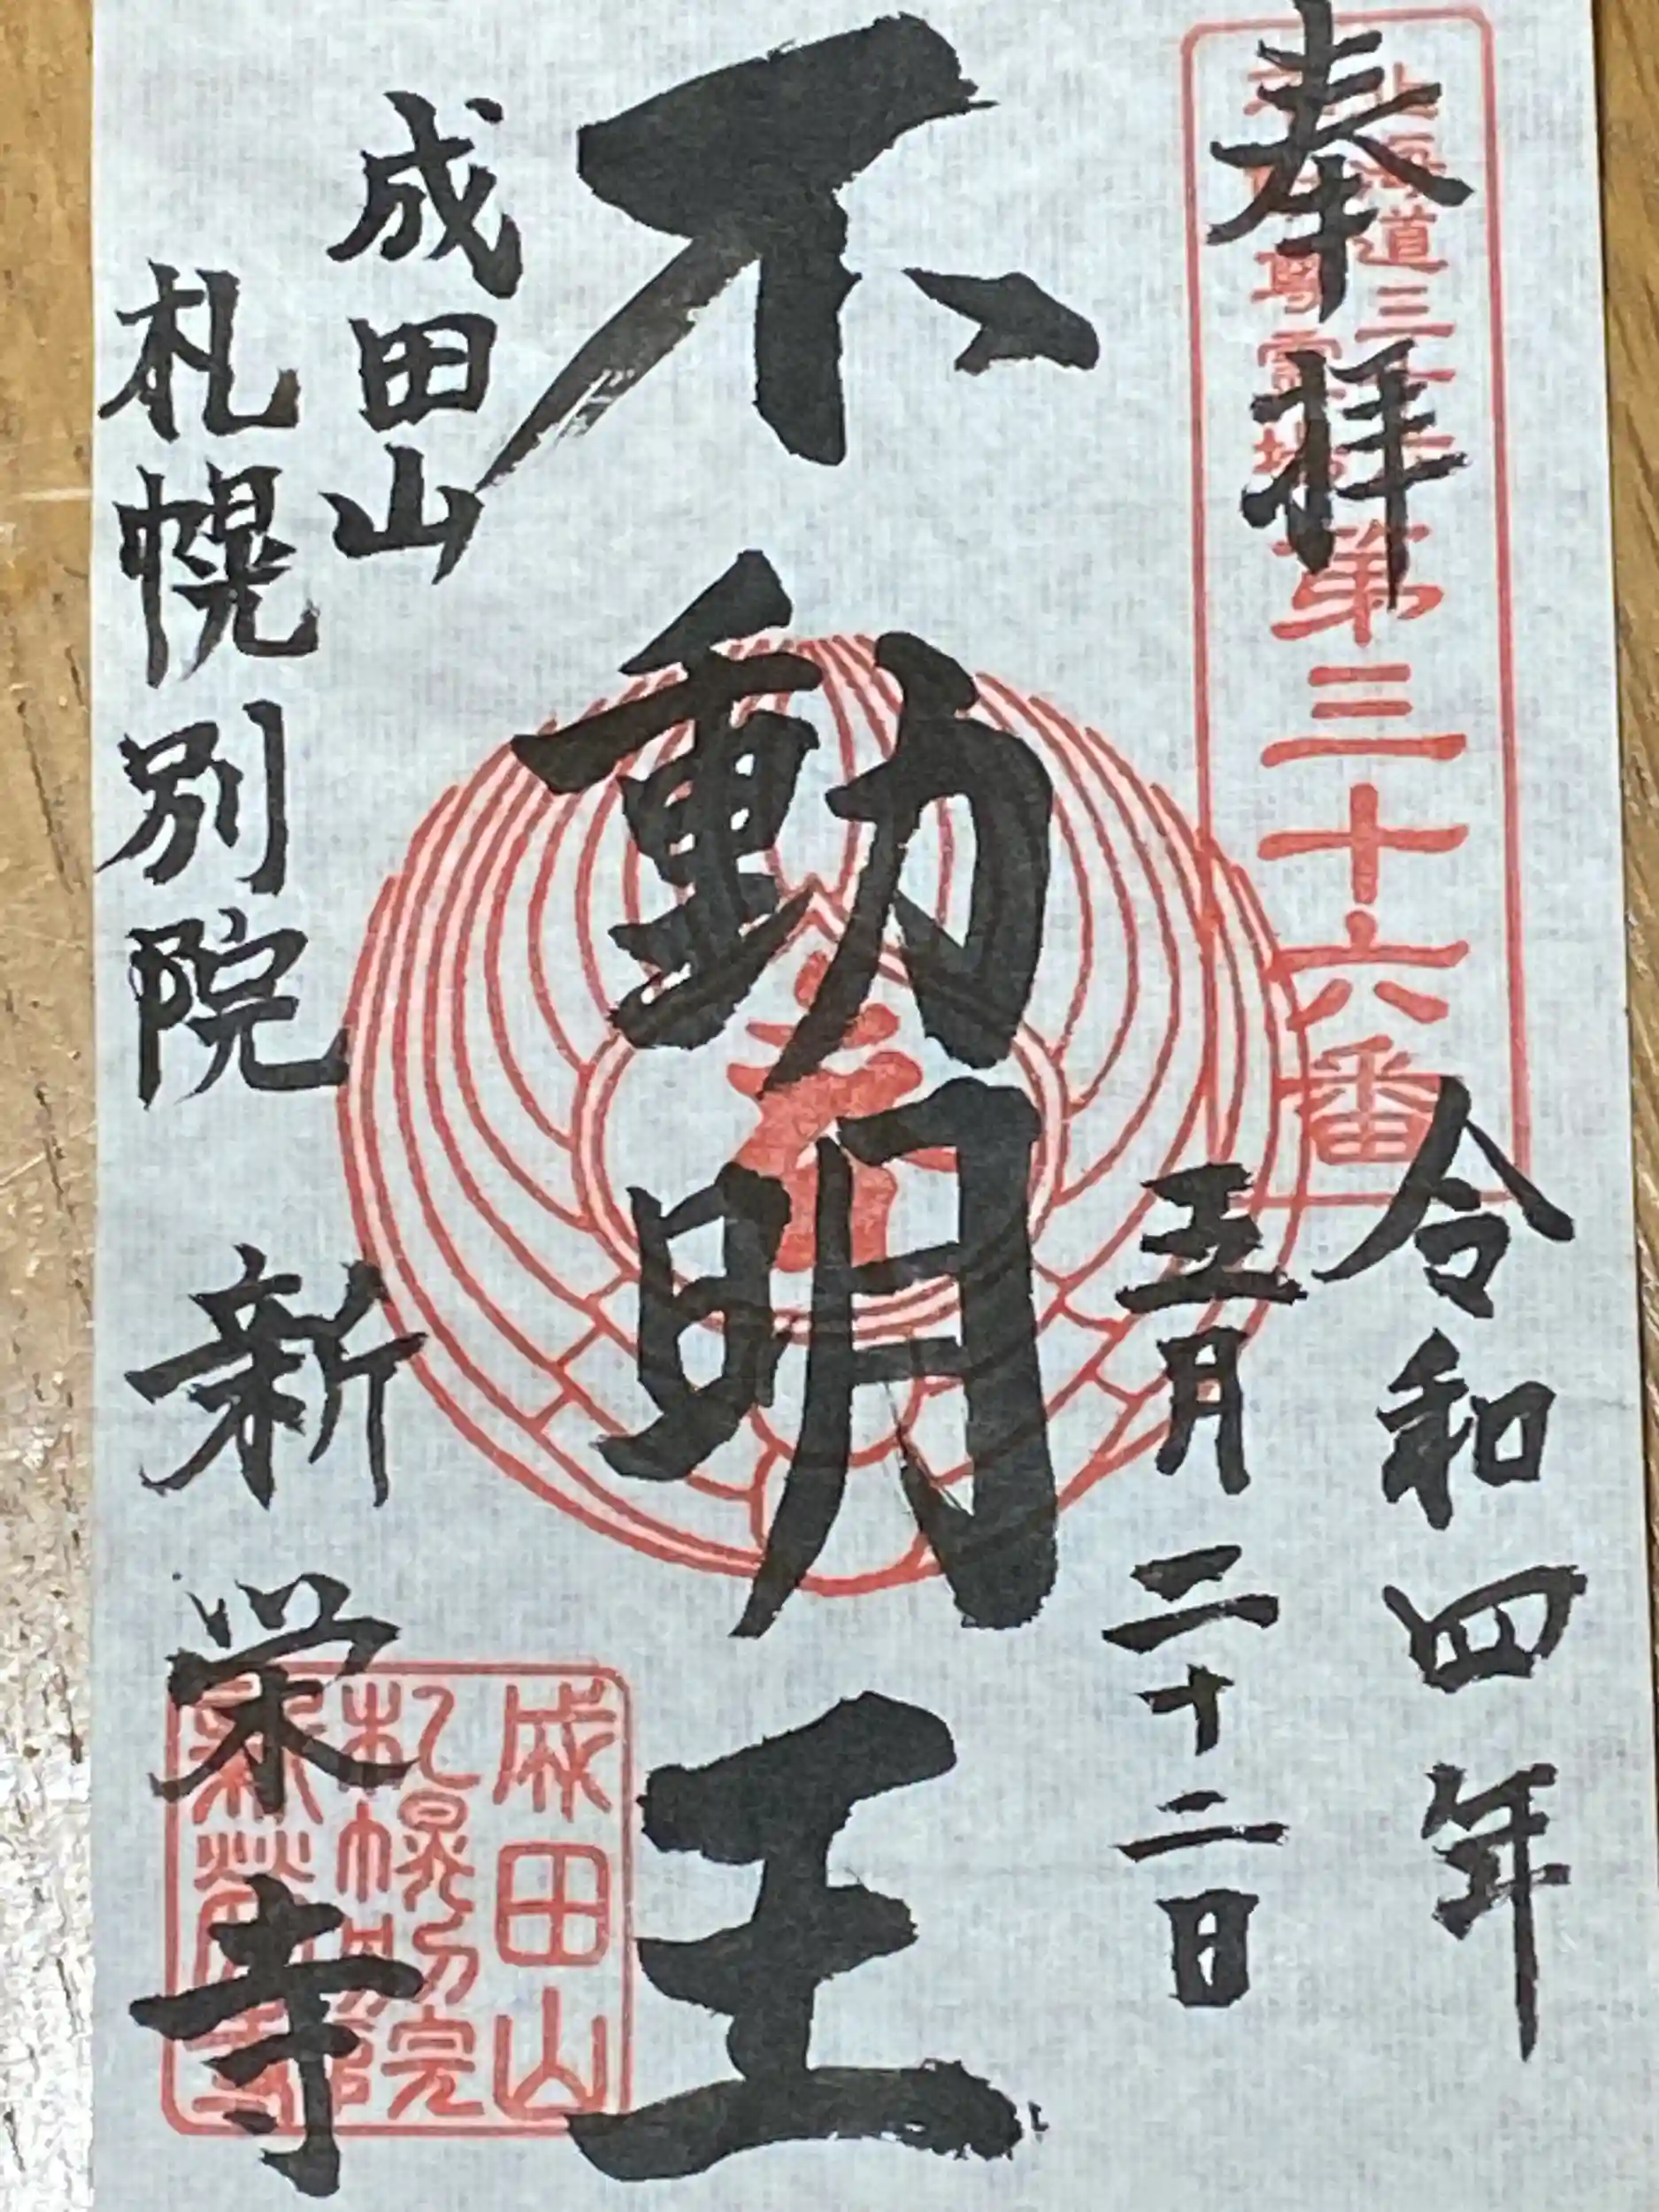 奉拝
北海道三十六
不動尊霊場
第三十六番
令和四年
五月二十二日
不動明王
成田山
札幌別院
新栄寺
成田山
札幌別院